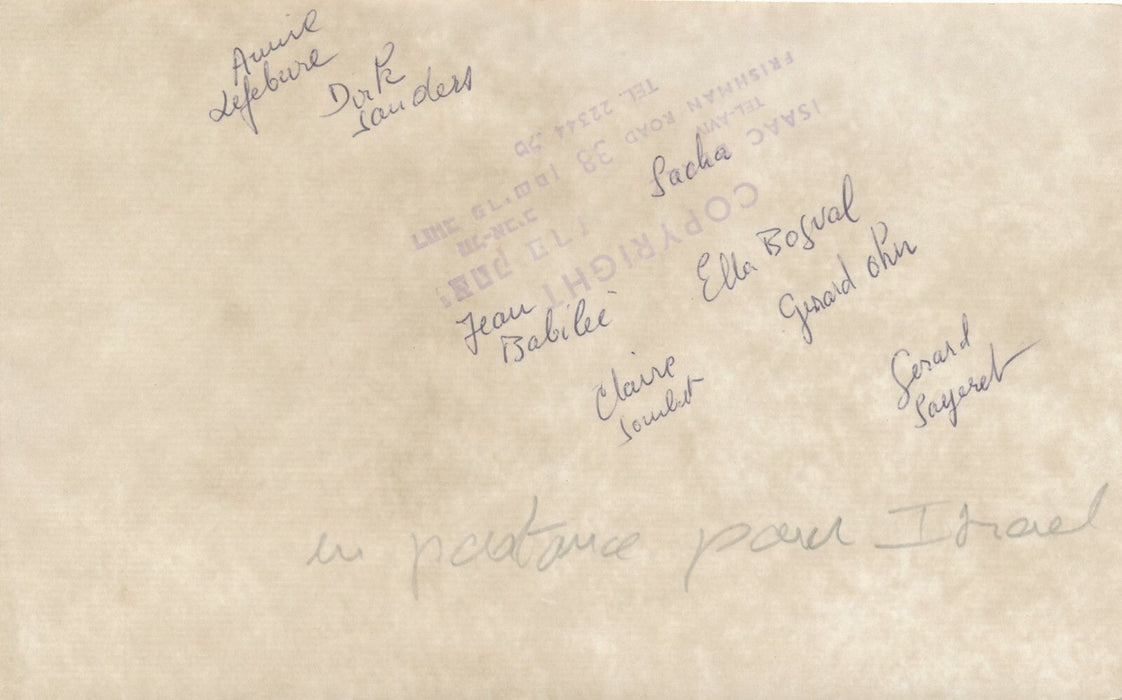 Annie
Lefebvre
Dirk
Sanders
Sacha
Ella Bogval
Gérard Ohn
Jean
Babilée
Claire
Sombert
Gerard
Sayeret
en partance pour Israel
COPYRIGHT
ISAAC
TEL-AVIV
FRISHMAN ROAD 38
TEL 22344 .טל
תל-אביב